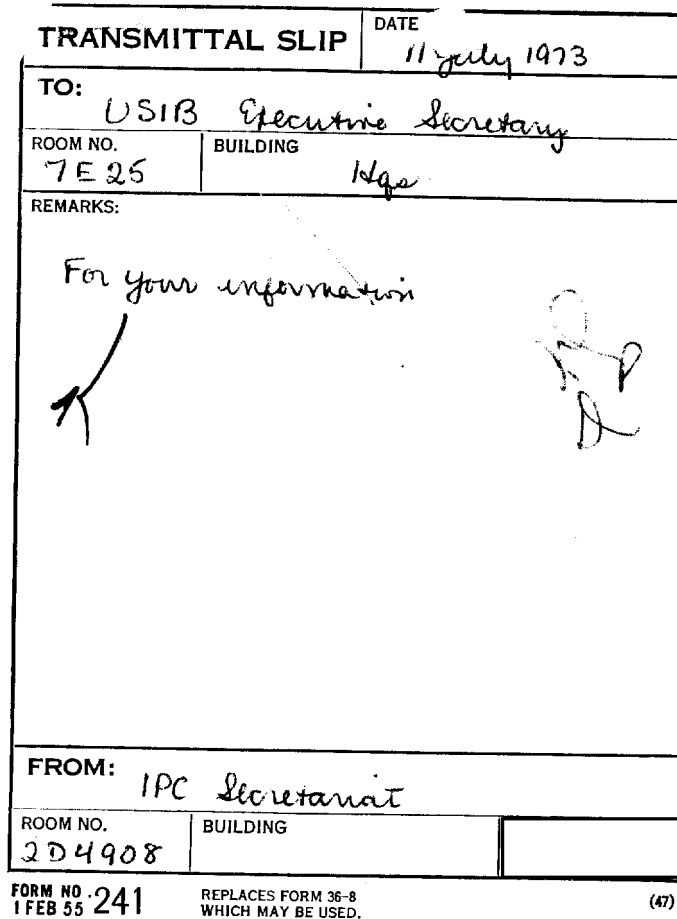 TRANSMITTAL SLIP
DATE
11 July 1973
TO:
USIB Executive Secretary
ROOM NO.
7E25
BUILDING
Hqs
REMARKS:
For your information
FROM:
IPC Secretariat
ROOM NO.
2D4908
BUILDING
FORM NO. 241
1 FEB 55
REPLACES FORM 36-8
WHICH MAY BE USED.
(47)